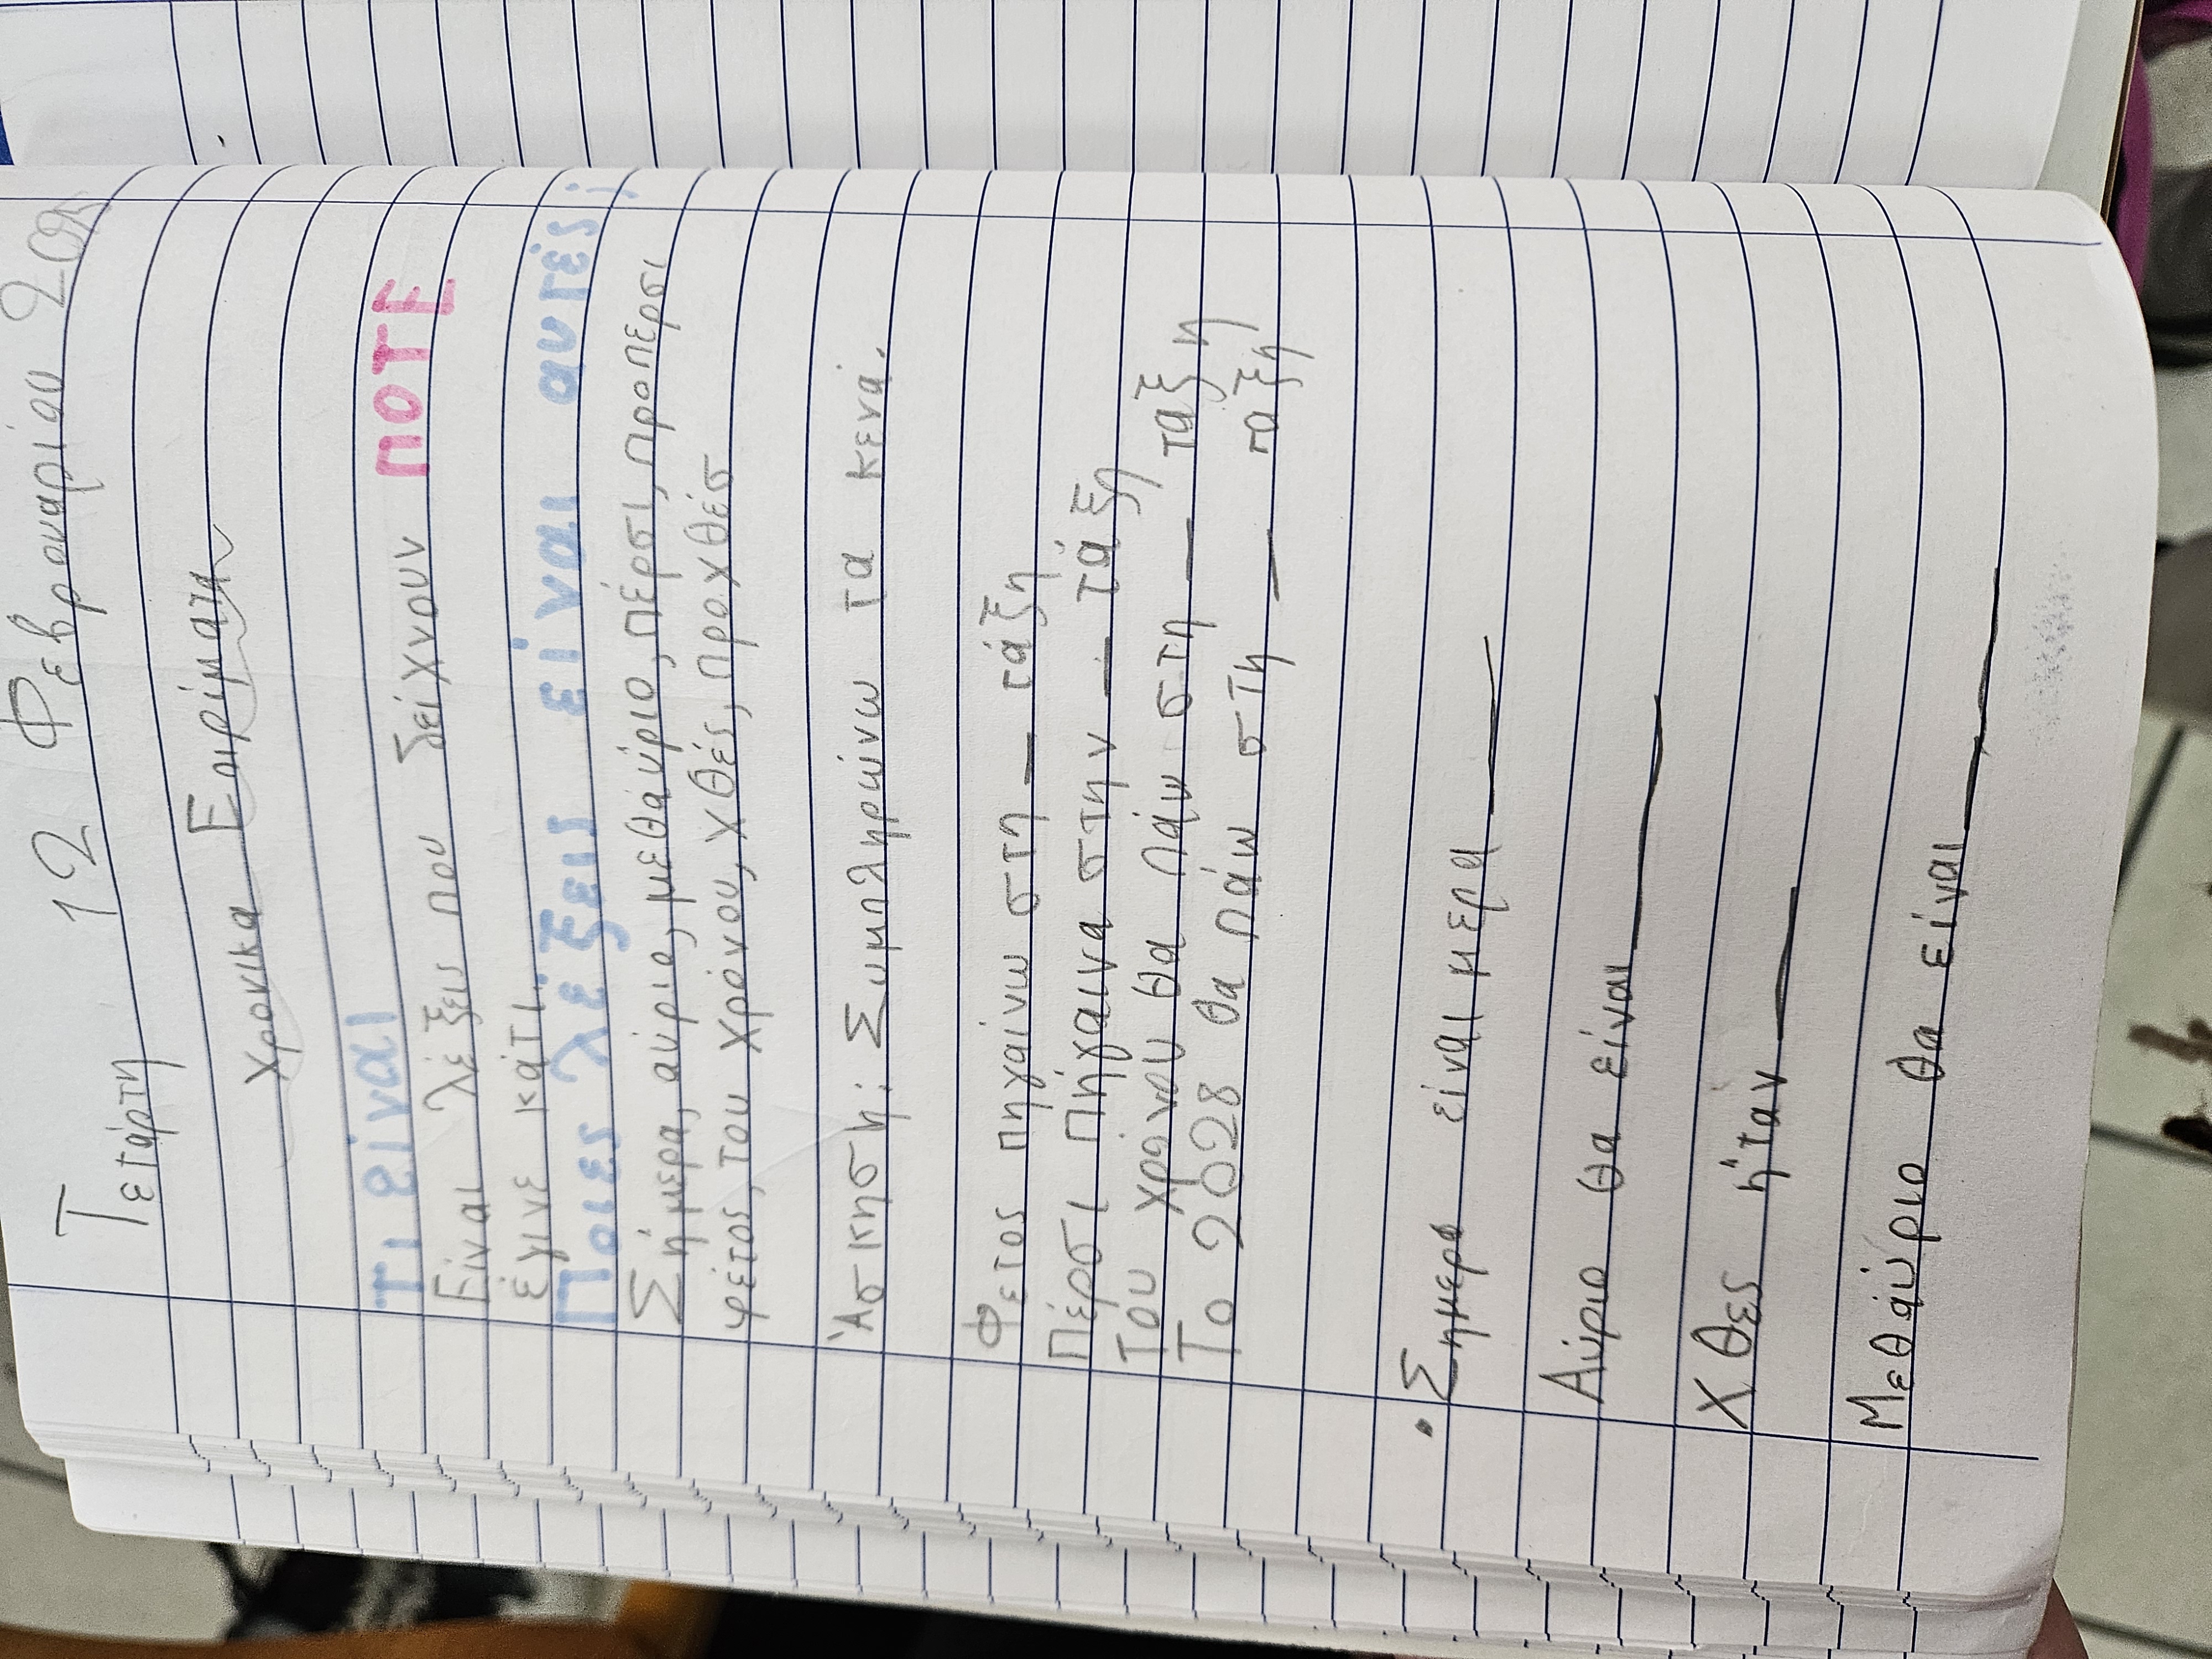 Τετάρτη 12 Φεβρουαρίου
Χρονικα Επιρίματα
Τι είναι
Είναι λέξεις που δείχνουν ΠΟΤΕ
έγινε κάτι.
Ποιες λέξεις είναι αυτές;
Σήμερα, αύριο, μεθαύριο, πέρσι, προπερσι
φέτος, του χρόνου, χθές, προχθές
Άσκηση: Συμπληρώνω τα κενά.
Φετος πηγαίνω στη _ τάξη
Πέρσι πήγαινα στην _ τάξη
Του χρόνου θα πάω στη _ ταξη
Το 2028 θα πάω στη _ ταξη
• Σημερα είναι μερα __
Αύριο θα είναι __
Χθες ήταν __
Μεθαύριο θα είναι __